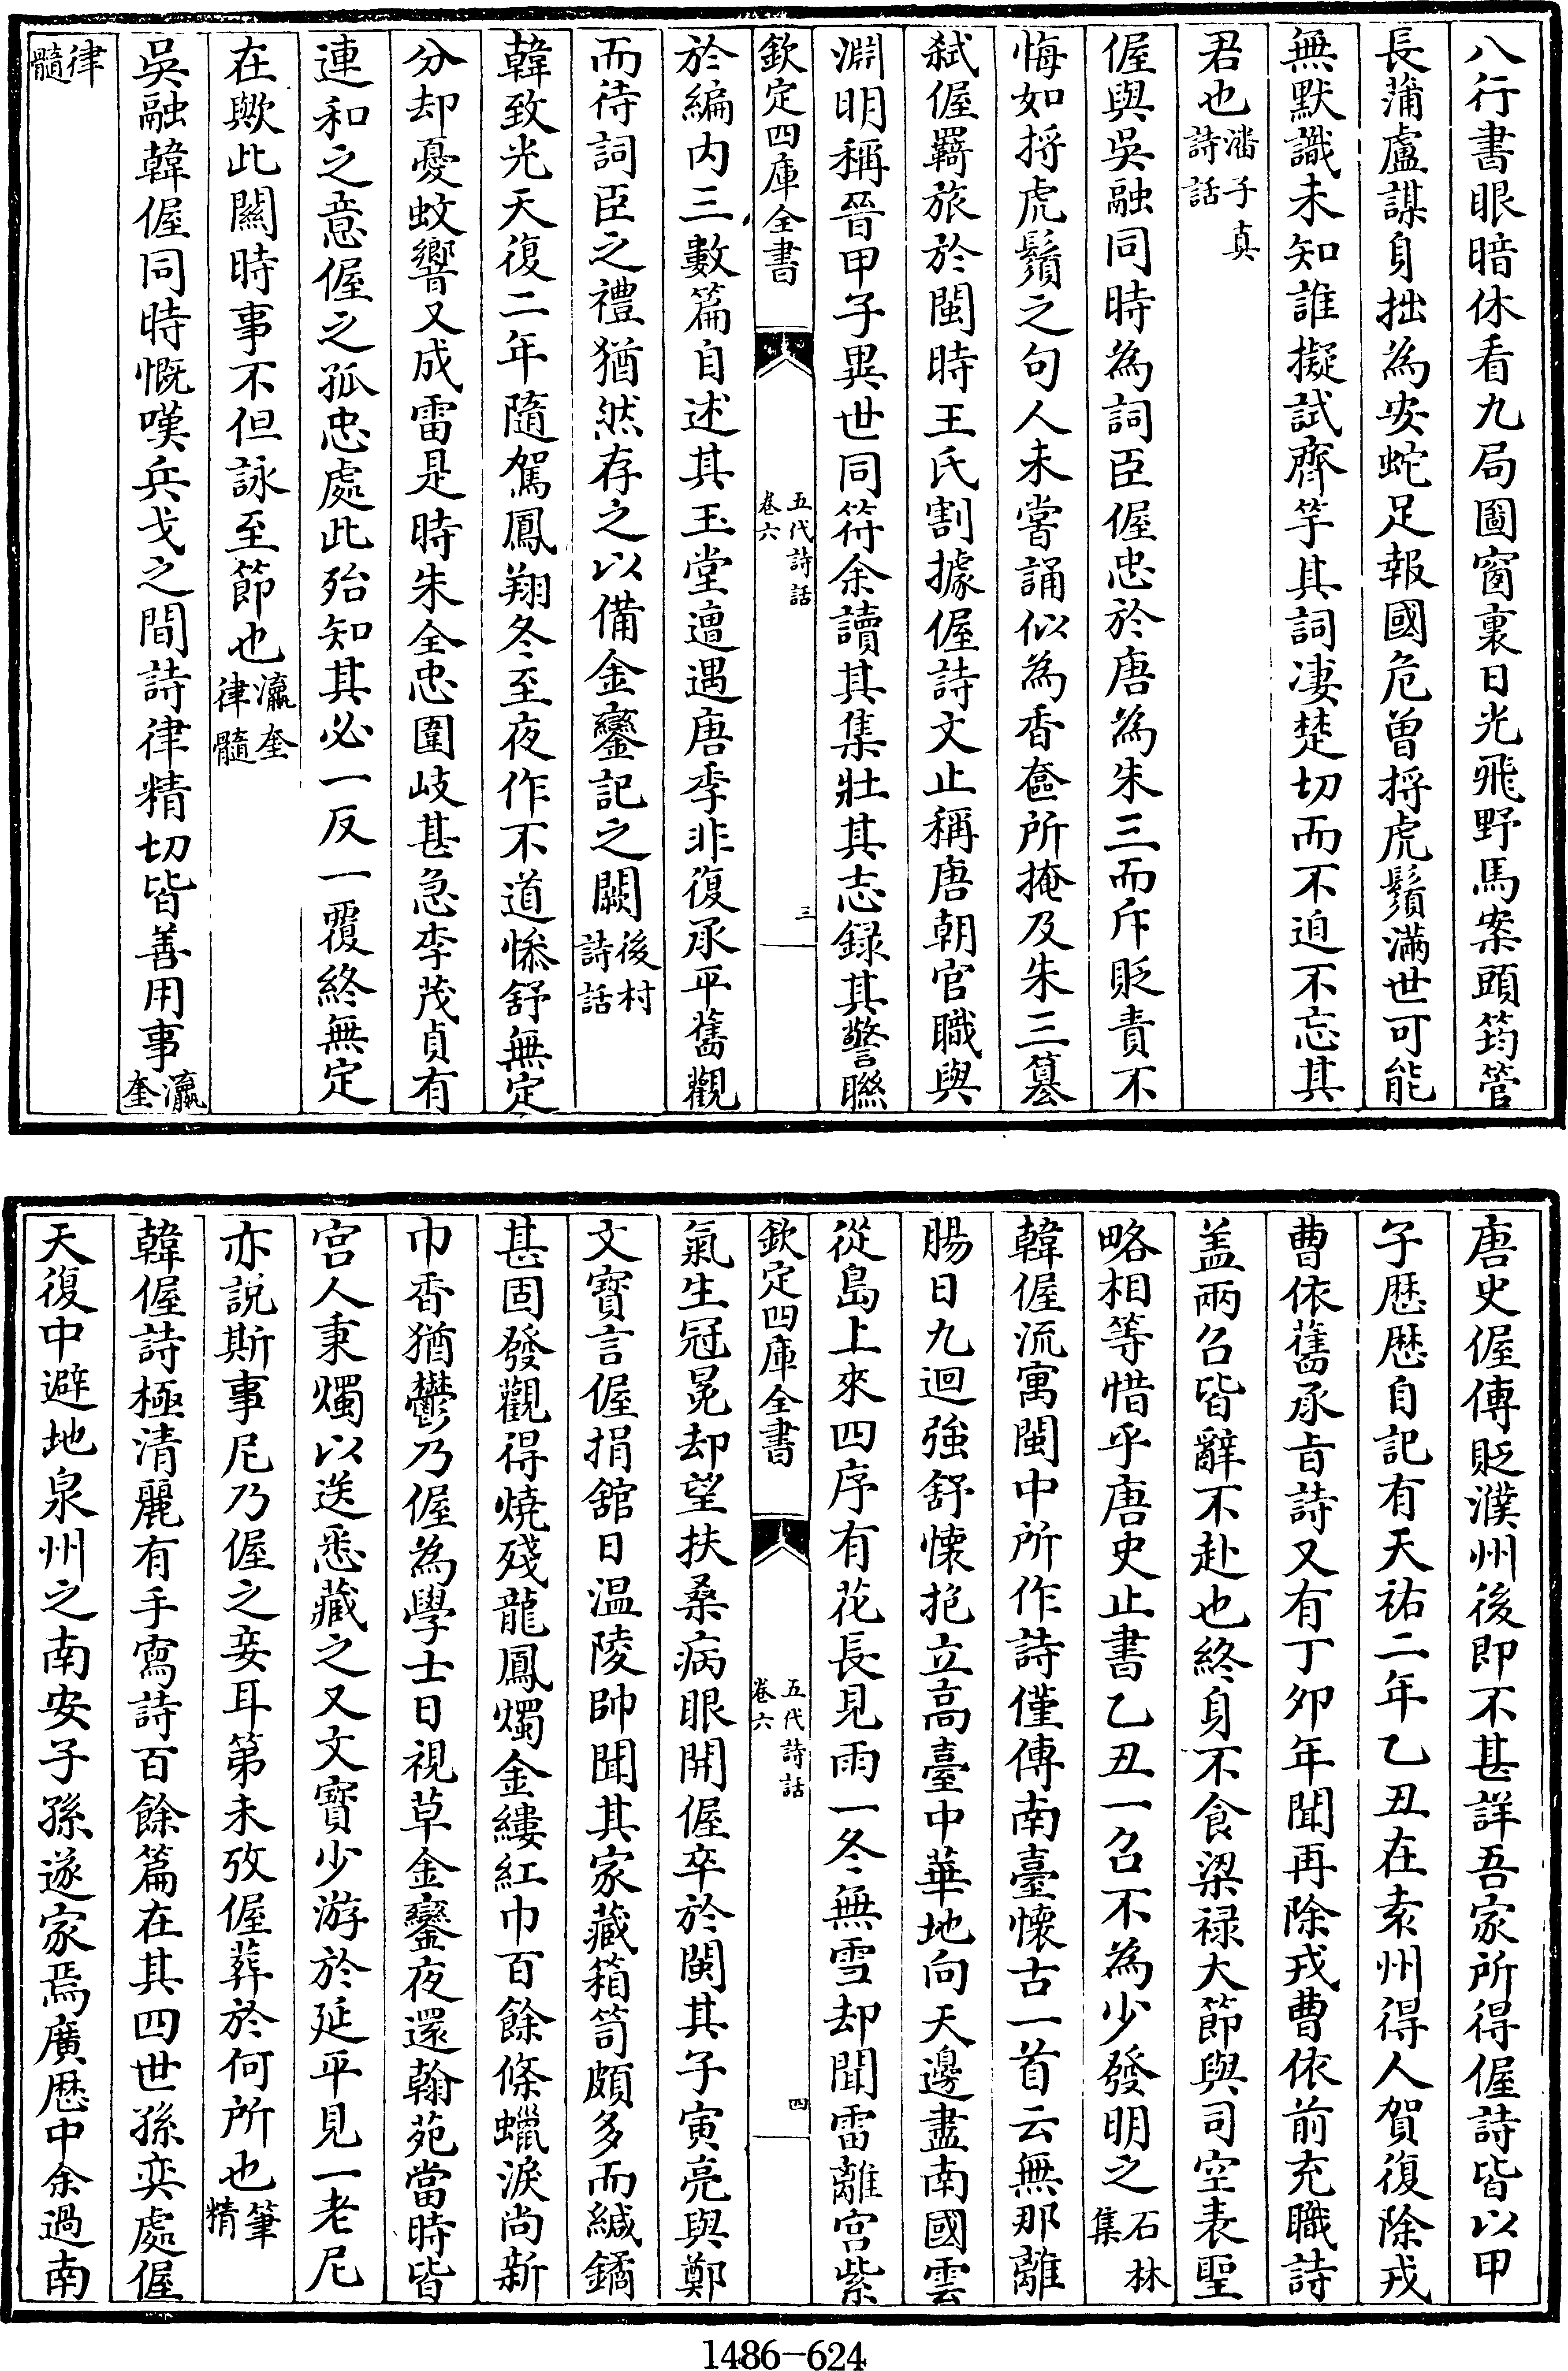 八行書眼暗休看九局圖窗裏日光飛野馬案頭筠管
長蒲盧謀身拙為安蛇足報國危曾捋虎鬚滿世可能
無默識未知誰擬試齊竽其詞凄楚切而不迫不忘其
君也潘子真詩話
偓與吳融同時為詞臣偓忠於唐為朱三而斥貶責不
悔如捋虎鬚之句人未嘗誦似為香奩所掩及朱三簒
弒偓羇旅於閩時王氏割據偓詩文止稱唐朝官職與
淵明稱晉甲子異世同符余讀其集壯其志録其警聯
欽定四庫全書
五代詩話
卷六
三
於編内三數篇自述其玉堂遭遇唐季非復承平舊觀
而待詞臣之禮猶然存之以備金鑾記之闕後村詩話
韓致光天復二年隨駕鳳翔冬至夜作不道慘舒無定
分却憂蚊響又成雷是時朱全忠圍岐甚急李茂貞有
連和之意偓之孤忠處此殆知其必一反一覆終無定
在歟此關時事不但詠至節也瀛奎律髓
吳融韓偓同時慨嘆兵戈之間詩律精切皆善用事瀛奎
律髓
唐史偓傳貶濮州後即不甚詳吾家所得偓詩皆以甲
子歴歴自記有天祐二年乙丑在袁州得人賀復除戎
曹依舊承㫖詩又有丁夘年聞再除戎曹依前充職詩
盖兩召皆辭不赴也終身不食梁禄大節與司空表聖
略相等惜乎唐史止書乙丑一召不為少發明之石林集
韓偓流寓閩中所作詩僅傳南臺懷古一首云無那離
腸日九迴強舒懷抱立高臺中華地向天邊盡南國雲
從島上來四序有花長見雨一冬無雪却聞雷離宫紫
欽定四庫全書
五代詩話
卷六
四
氣生冠冕却望扶桑病眼開偓卒於閩其子寅亮與鄭
文寳言偓捐舘日温陵帥聞其家藏箱笥頗多而緘鐍
甚固發觀得燒殘龍鳳燭金縷紅巾百餘條蠟淚尚新
巾香猶鬱乃偓為學士日視草金鑾夜還翰苑當時皆
宫人秉燭以送悉藏之又文寳少游於延平見一老尼
亦説斯事尼乃偓之妾耳第未攷偓葬於何所也筆精
韓偓詩極清麗有手寫詩百餘篇在其四世孫奕處偓
天復中避地泉州之南安子孫遂家焉廣歴中余過南
1486-624